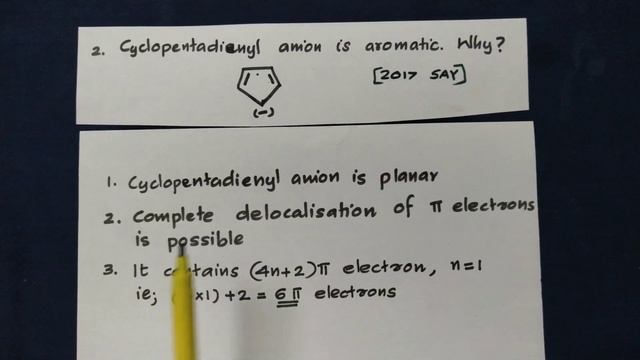 2. Cyclopentadienyl anion is aromatic. Why?
[2017 SAY]
(-)
1. Cyclopentadienyl anion is planar
2. Complete delocalisation of π electrons
is possible
3. It contains (4n+2)π electron, n=1
ie; x1)+2 = 6π electrons